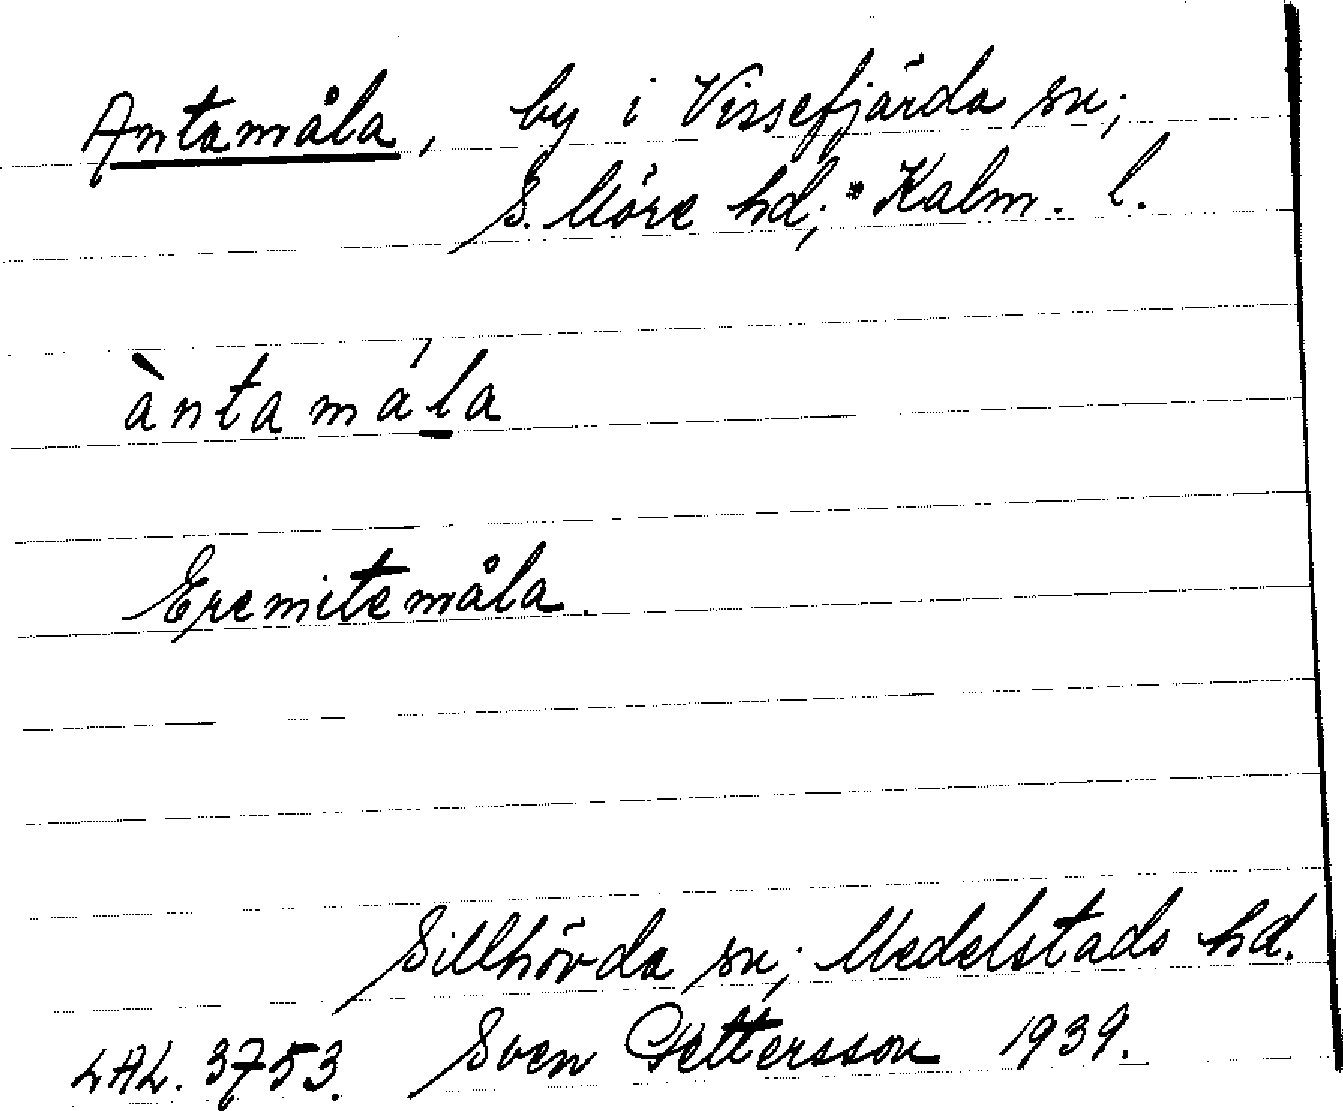 Antamåla, by i Vissefjärda sn;
S. Möre hd; Kalm. l.
àntamála
Eremitemåla.
Sillhövda sn; Medelstads hd.
LAL. 3753. Sven Pettersson 1939.